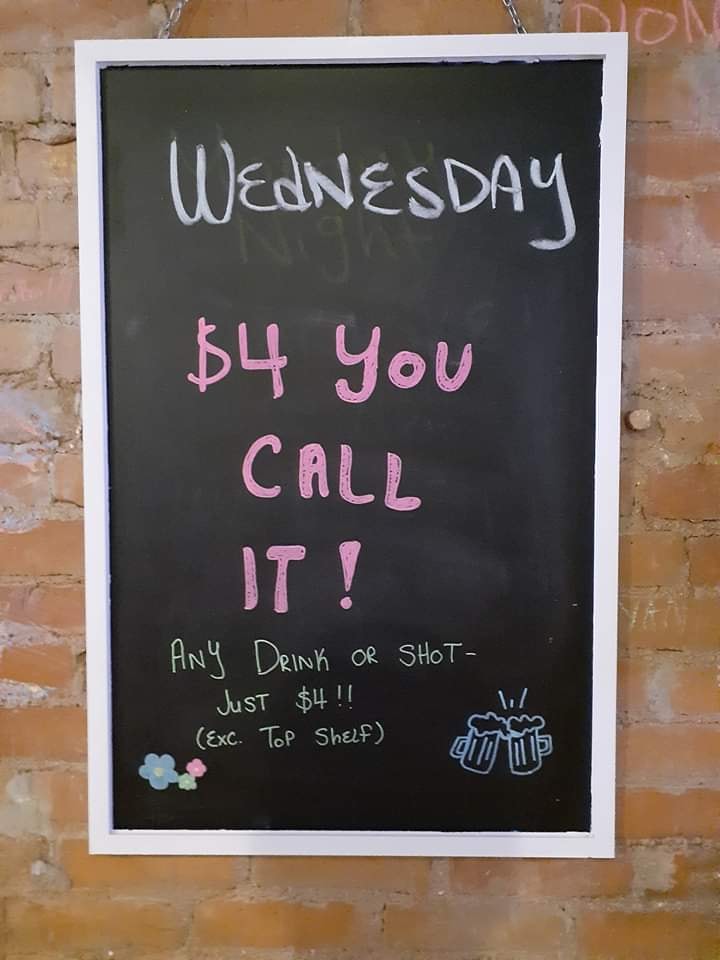 WEdNESDAY
$4 YOU
CALL
IT!
ANY DRINK OR SHOT-
JUST $4!!
(Exc. Top Shelf)
DION
Night